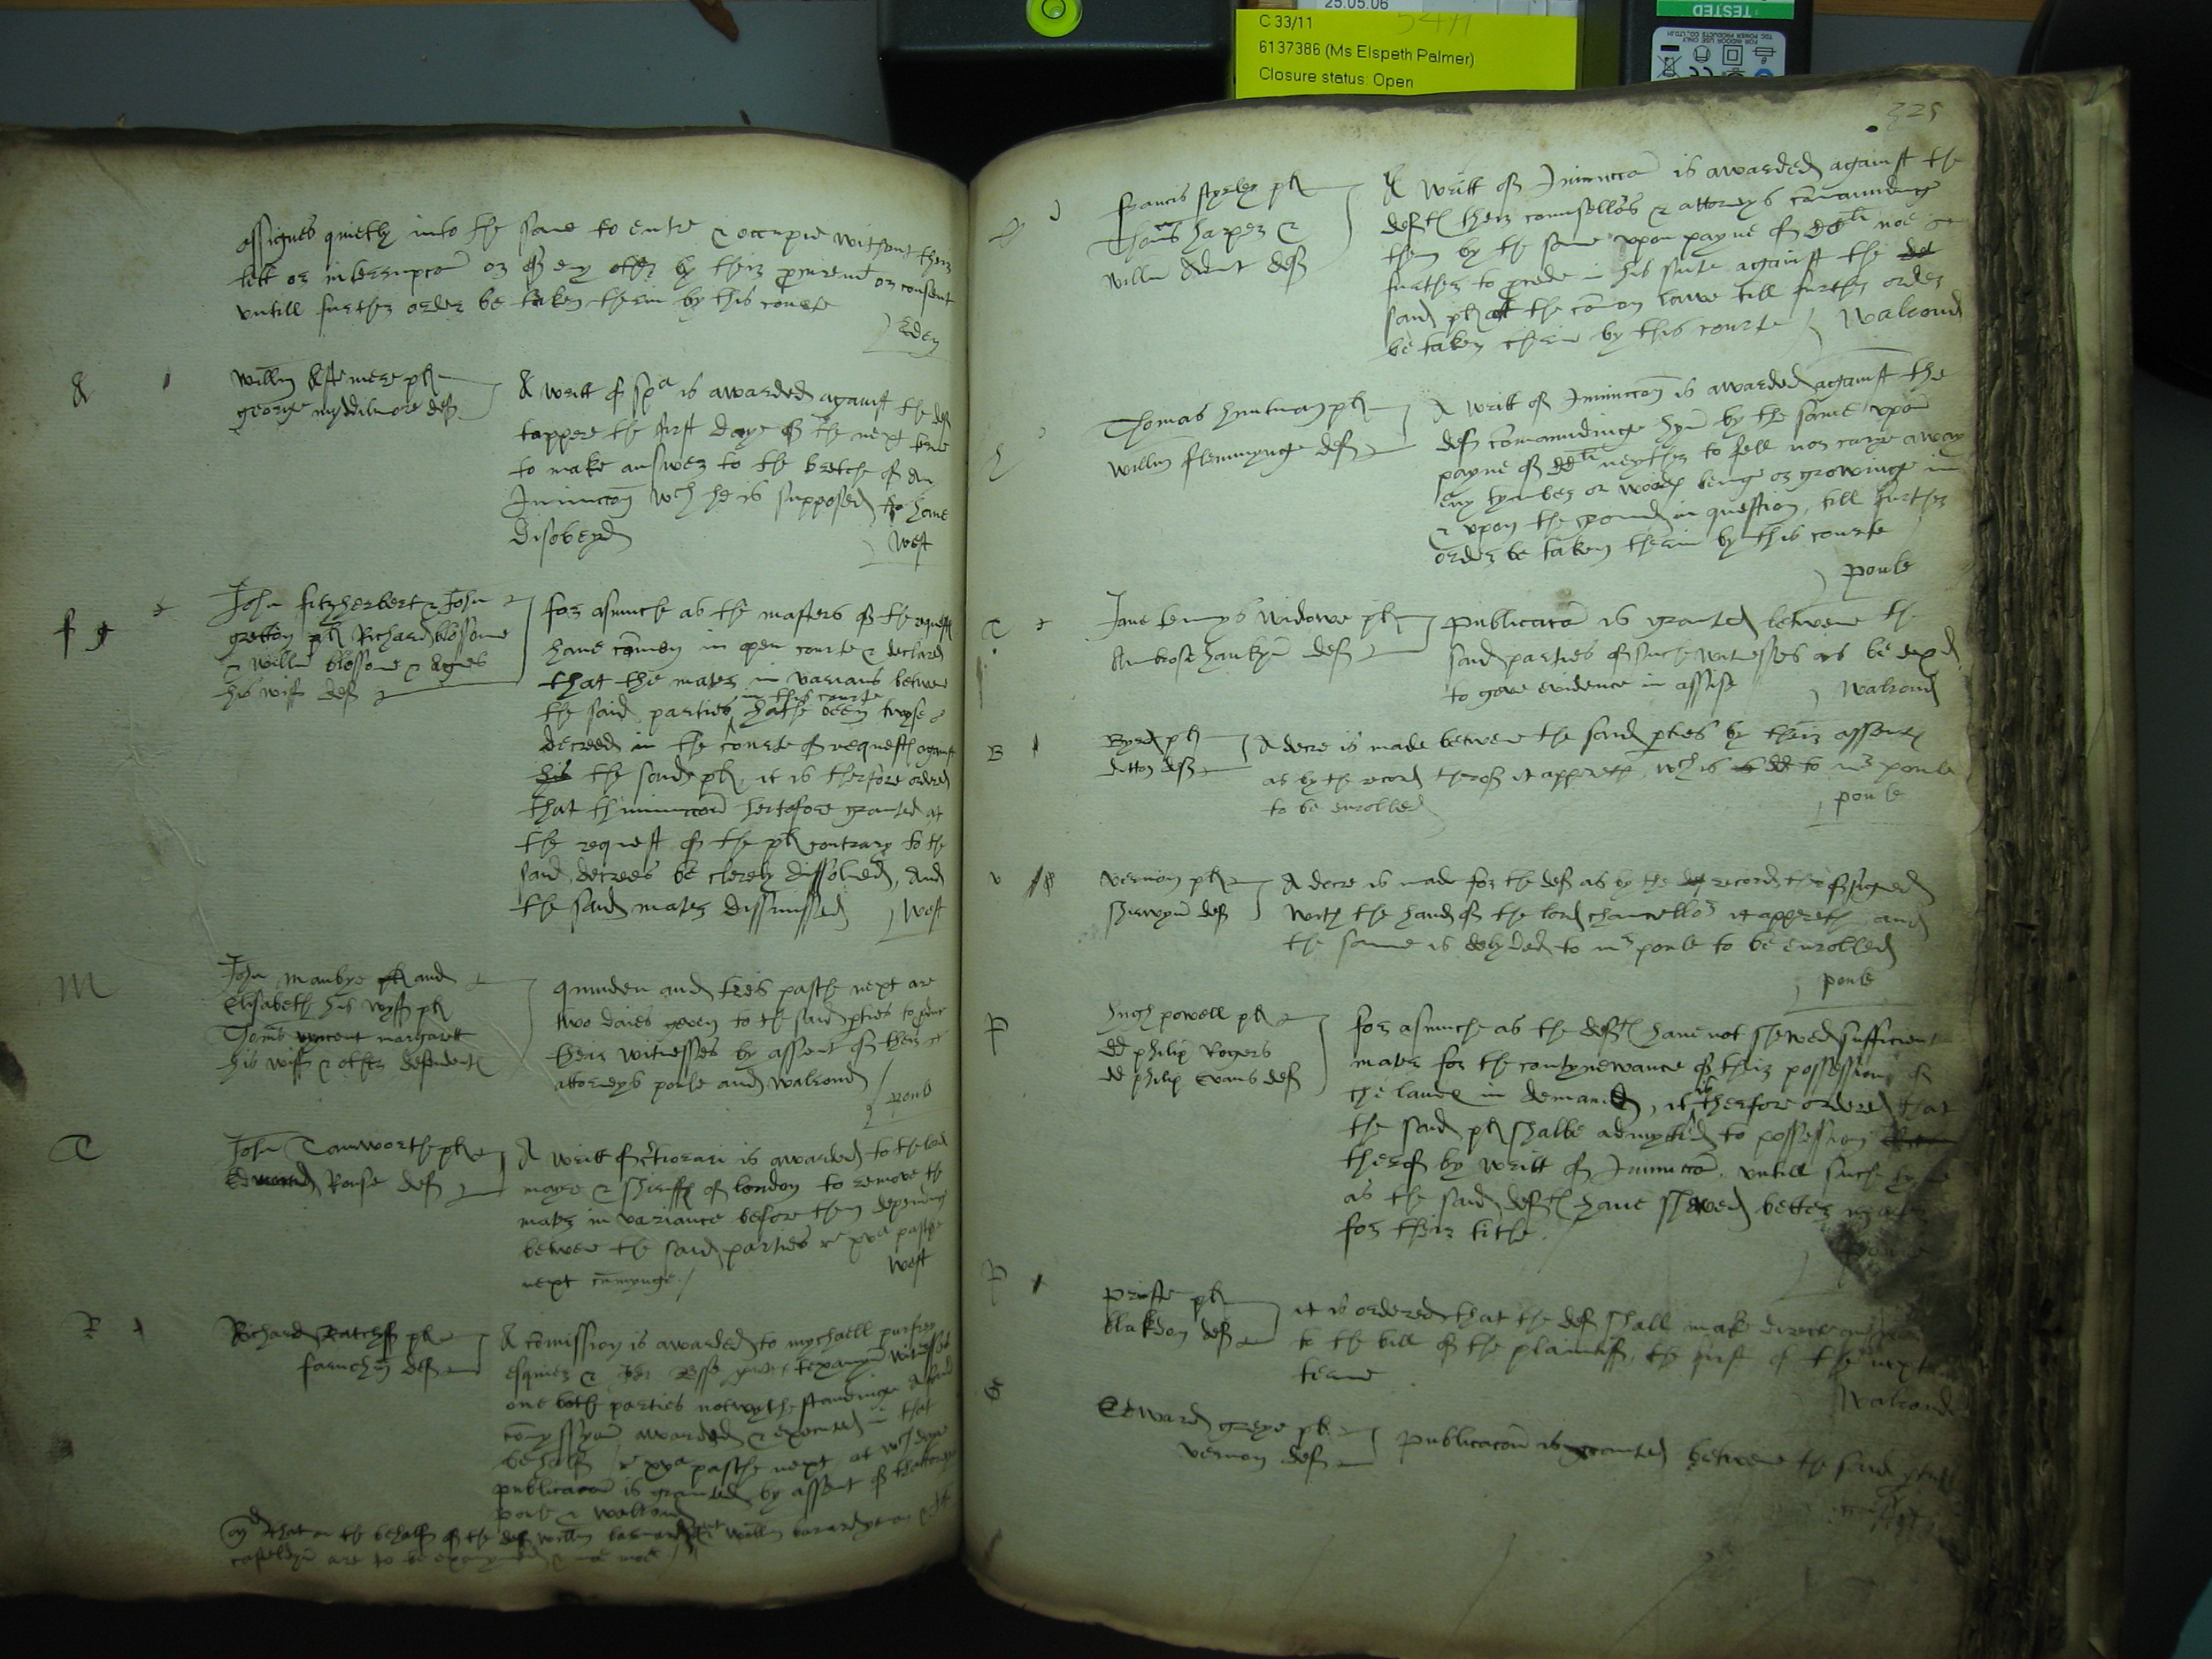 25.05.06
C 33/11
6137386 (Ms Elspeth Palmer)
Closure status: Open
TESTED
assignes quietly into the same to entre & occupie without their
lett or interrupcon or of eny other by their procurement or consent
untill further order be taken therin by this courte
Eden
A
Willm Astemere pl
george myddilmore def
A writt of spa is awarded against the def
tappere the first daye of the next terme
to make answer to the bretche of an
Iniunccon wch he is supposed to have
disobeyed
West
f g
John fitzherbert & John
gretton pl Richard blossome
& willm blossome & Agnes
his wiff def
for asmuche as the masters of the requestes
have comen in open courte & declared
that the mater in varians betwene
in this courte
the said parties hathe been twyse
decreed in the courte of requestes against
his the saide pl, it is therfore ordered
that thiniunccon hertofore graunted at
the request of the pl contrary to the
said decrees be clerely dissolved, And
the said mater dissmissed
West
M
John Manbye pl and
Elisabeth his wyff pl
Thoms vyncent margarett
his wiff & other defendentes
quinden and tres pasche next are
two daies geven to the said parties to
their witnesses by assent of their
attorneys poule and walrond
poule
T
John Tamworthe pl
Edward Rouse def
A writt of certiorari is awarded to the lord
mayre & Shireffes of london to remove the
mater in variance before them depending
betwene the said parties re xva pasche
next comynge
West
R
Richard Ratclyff pl
def
A comission is awarded to mychaell purfrey
esquier & texamyn witnesses
one bothe parties notwythestandinge
comyssyon awarded & executed in that
behalf re xva pasche next at wch daye
publicacon is graunted by assent of thattorneys
poule & walrond
and that on the behalf of the def willm & willm
are to be examyned & noe moe
325
francis pl
Thoms harper &
willm def
A writt of Iniunccon is awarded against the
deftes their counsellors & attorneys comaundinge
them by the same upon payne of noe
further to procede in his sute against the
said pl att the comon lawe till further order
be taken therin by this courte
Walrond
h
Thomas huntman pl
Willm flemmynge def
A writt of Iniunccon is awarded against the
def comaundinge hym by the same upon
payne of neyther to fell nor carye away
eny tymber or woodes beinge or growinge in
& upon the ground in question, till further
order be taken therin by this courte
poule
T
Jane widowe pl
Ambrose def
publicacon is graunted betwene the
said parties of suche witnesses as be exd
to geve evidence in assise
Walrond
B
Byrd pl
ditton def
A decre is made betwene the said parties by their assentes
as by the record therof it appereth, wch is dd to mr poule
to be enrolled
poule
v
vernon pl
Sherwyn def
A decre is made for the def as by the record therof signed
with the hand of the lord chauncellor it appereth and
the same is delyvered to mr poule to be enrolled
poule
P
hugh powell pl
dd philip Rogers
dd philip Evans def
for asmuche as the deftes have not shewed sufficient
mater for the contynewance of their possession of
is
the landes in demaund, it therfore ordered that
the said pl shalbe admytted to possession
therof by writt of Iniunccon, untill suche tyme
as the said deftes have shewed better mater
for their title
P
priste pl
blakdon def
it is ordered that the def shall make directe
to the bill of the plaintiff, the first of the next
terme
Walrond
G
Edward greye pl
vernon def
publicacon is graunted betwene the said parties